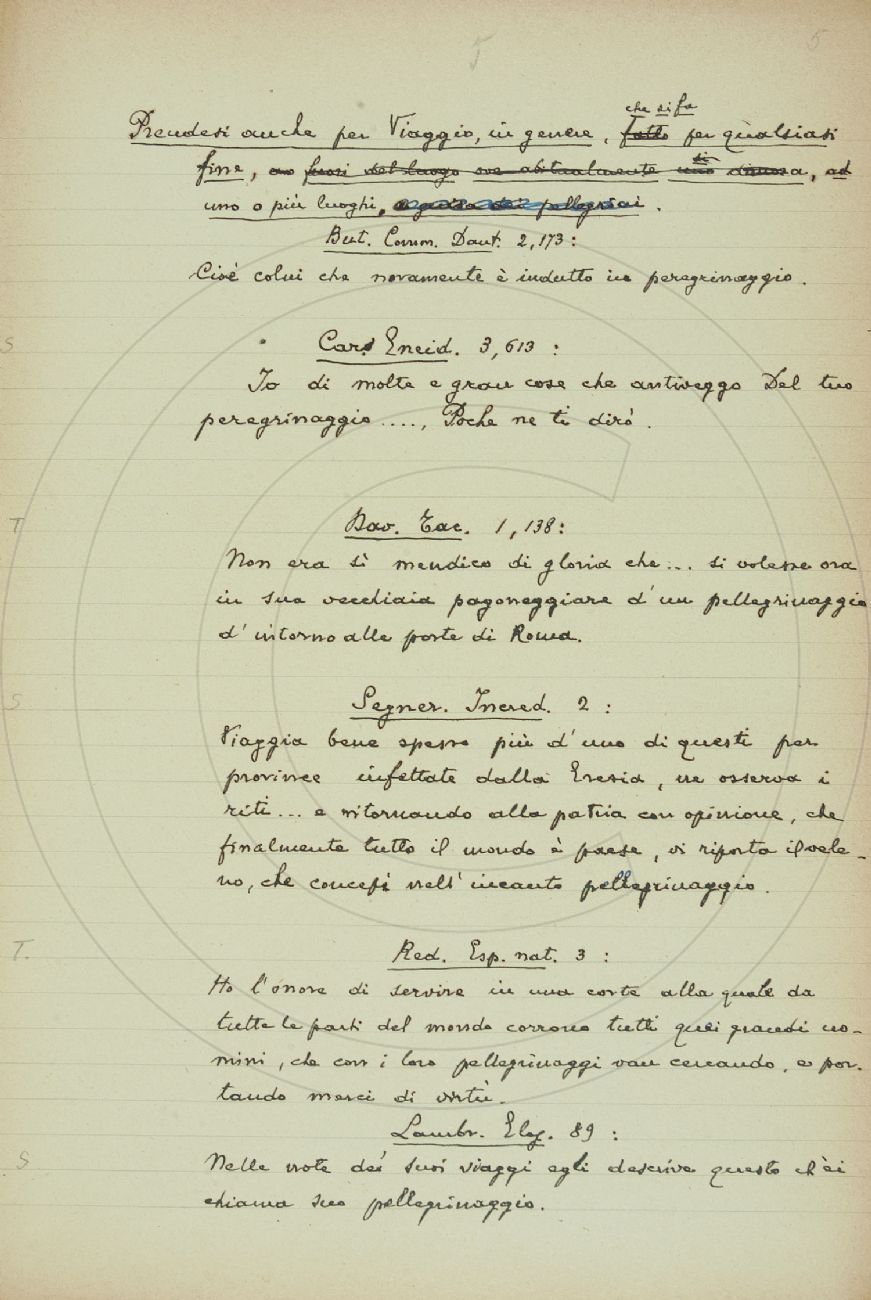 5 5
che si fa
Prendesi anche per Viaggio, in genere, fatto per qualsiasi
fine, fuori del luogo ove abitualmente uno si dimora, ad
uno o più luoghi, a guisa dei pellegrini.
But. Comm. Dant. 2,173:
Cioè colui che novamente è indutto in peregrinaggio.
S Car. Eneid. 3,613:
Io di molte e gran cose che antiveggo Del tuo
peregrinaggio...., Poche ne ti dirò.
T Dav. Tac. 1,138:
Non era sì mendico di gloria che... si volesse ora
in sua vecchiaia pagoneggiare d'un pellegrinaggio
d'intorno alle porte di Roma.
S Segner. Incred. 2:
Viaggia bene spesso più d'uno di questi per
provincee infettate dalla Eresia, ne osserva i
riti... e ritornando alla patria con opinione, che
finalmente tutto il mondo è paese, vi riporta il vele-
no, che concepì nell'incauto pellegrinaggio.
T. Red. Esp. nat. 3:
Ho l'onore di servire in una corte alla quale da
tutte le parti del mondo corrono tutti quei grandi uo-
mini, che con i loro pellegrinaggi van cercando, e por-
tando merci di virtù.
Lambr. Elog. 89:
S Nelle note dei suoi viaggi egli descrive questo ch'ei
chiama suo pellegrinaggio.